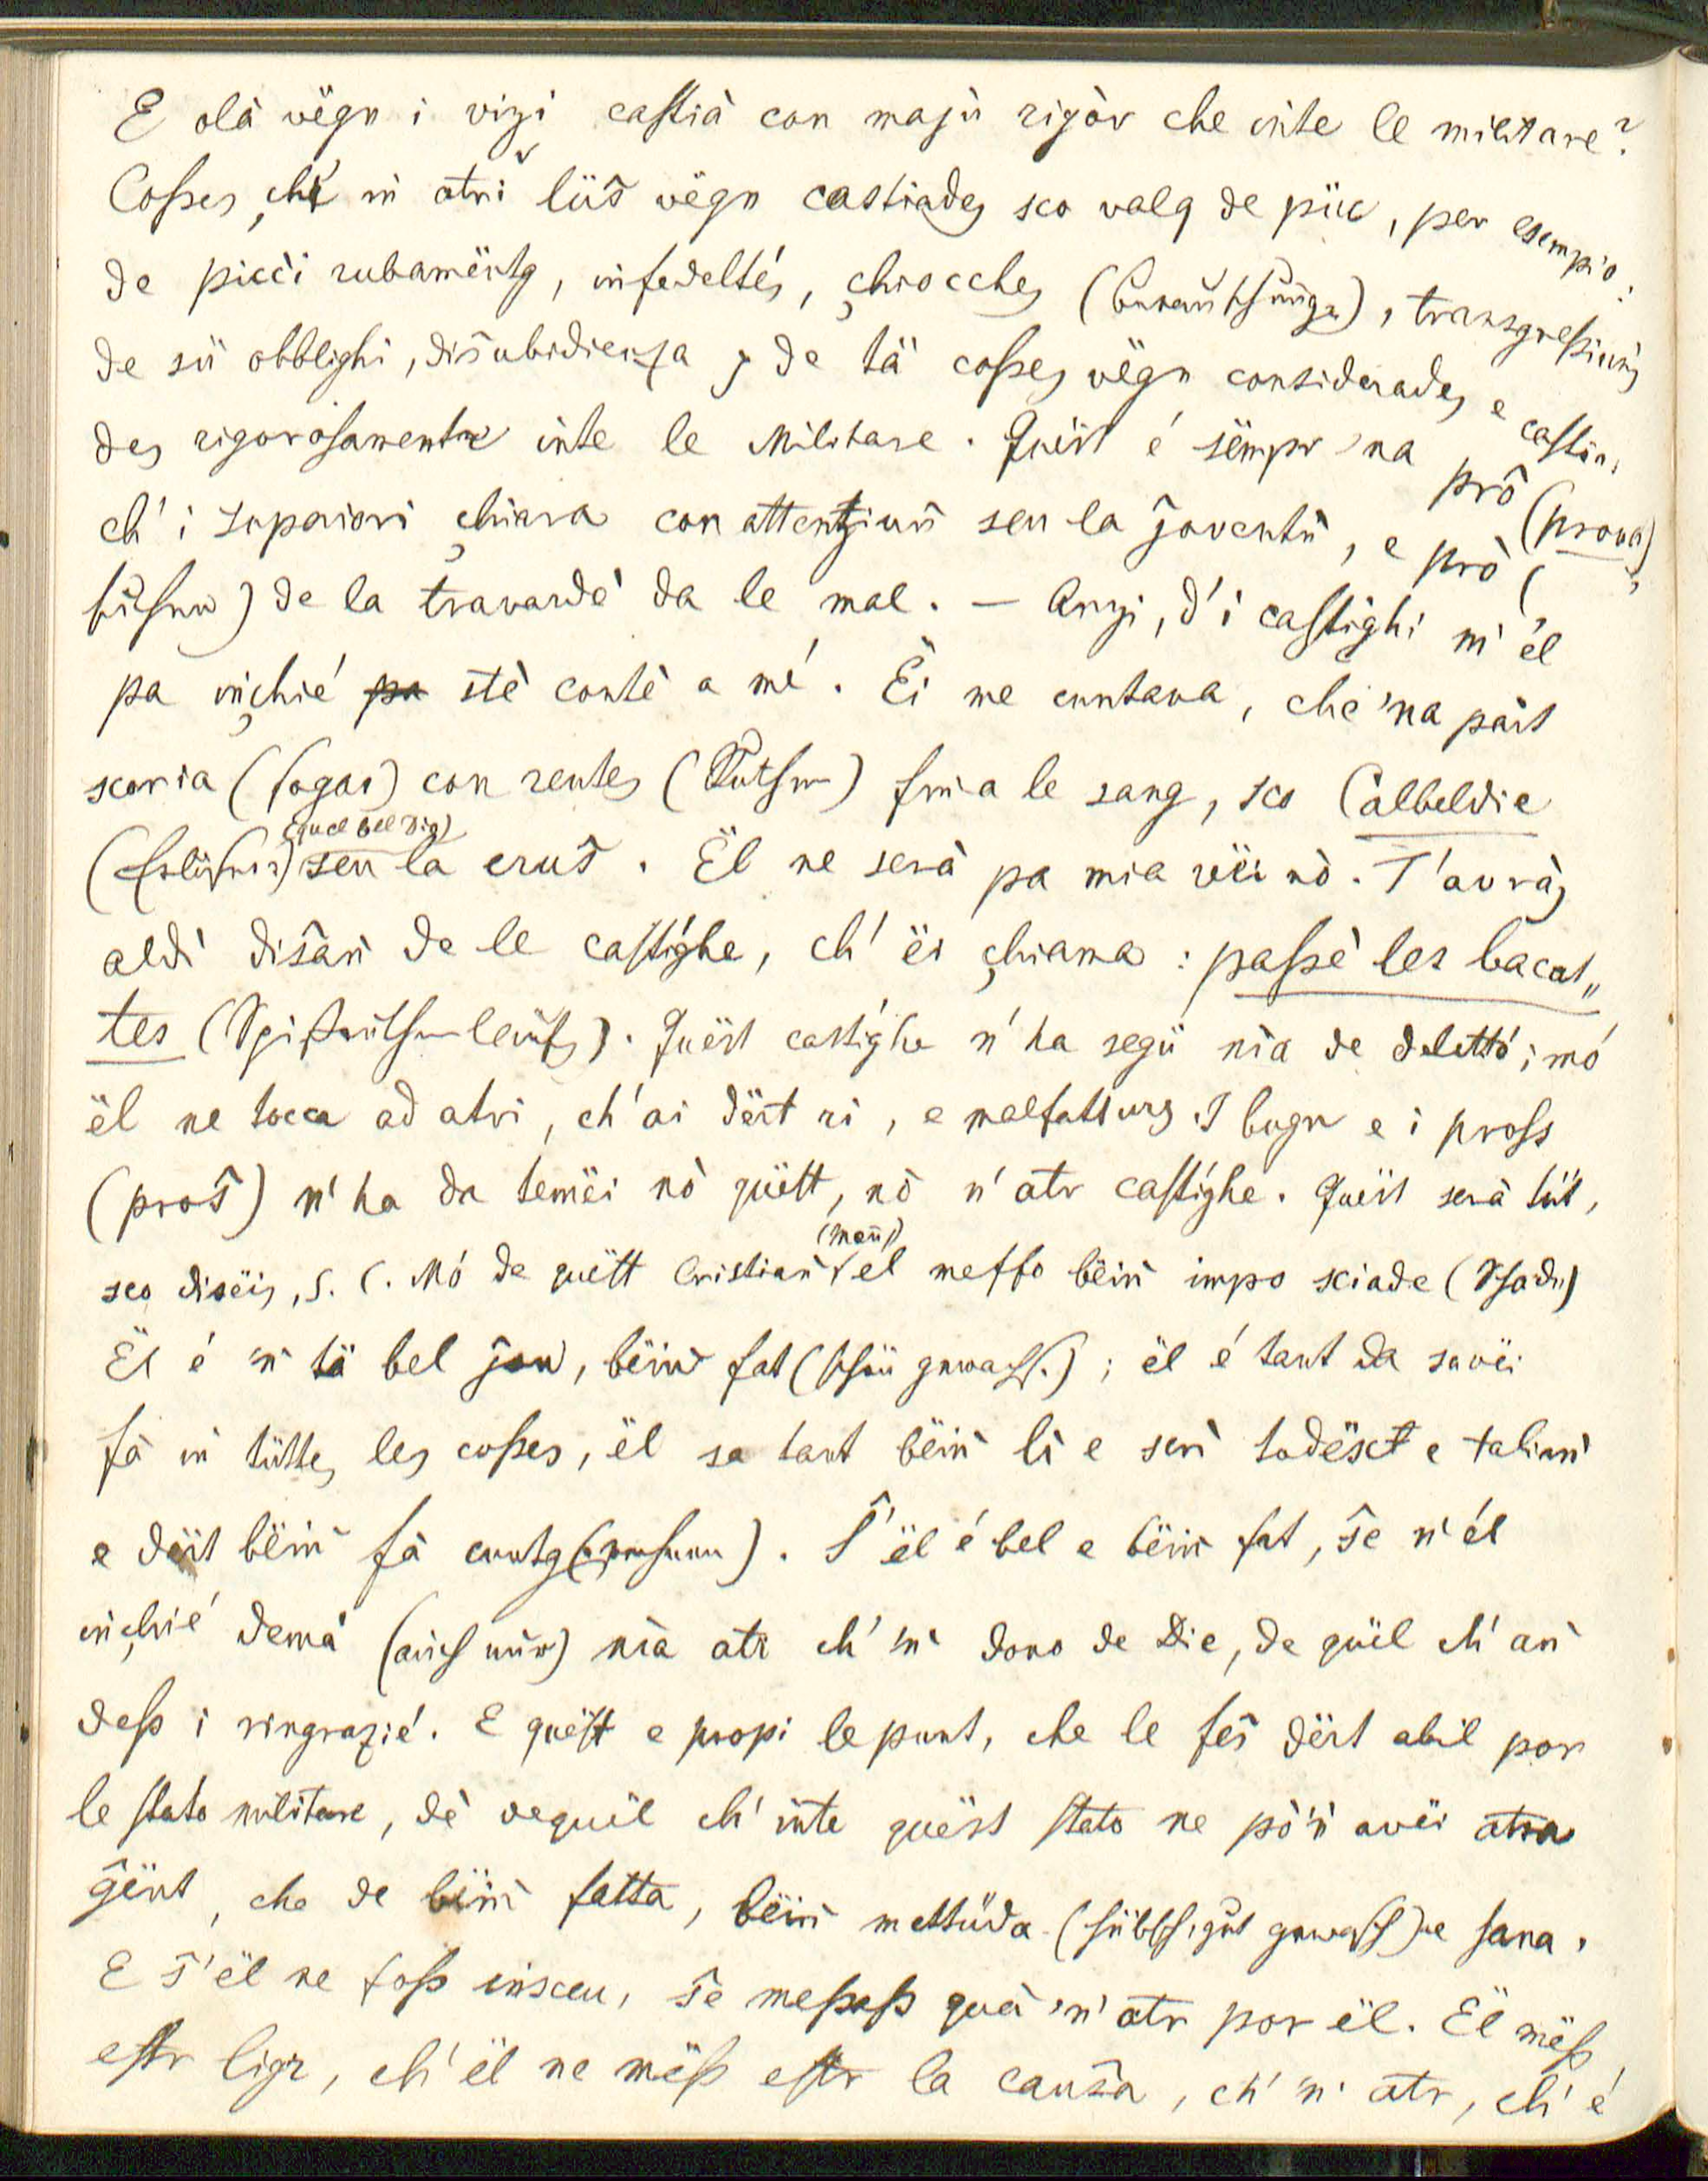 E olà vëgn i vizi castià con majù rigòr che inte le militare?
Coßes che in atri lüs̃ vëgn castiades sco valg de püc, per esempio:
de picci rubamëntg, infedeltés, chiocches, transgreßiuns
de sü obblighi, dis̃ubidienza, de tä coßes vëgn considerades e castia,
des rigorosamente inte le Militare. Quëst é sëmpr 'na prô (prova)
ch' i Superiori chiara con attentziun seu la joventü, e prô (
) de la travardè da le mal. — Anzi, d' i castighi n' él
pa inchié stè contè a mé. Ëi me cuntava, che 'na pärt
scoria (fogai) con rentes (Rutsn) fina le sang, sco Calbeldie
(quel bel dig) seu la crus̃. Ël ne serà pa mia vëi nò. T'avràs
aldì dis̃an de le castighe, ch' ëi chiama: passè les bacat„
tes. Quëst castighe n'ha segü nia de delettó; mó
ël ne tocca ad atri, ch' ai dërt ri, e malfatturs. I bugn e i pross
(pros̃) n'ha da temëi nò quëtt, nò n' atr castighe. Quëst serà tüt,
sco disëis, S. C. Mó de quëtt Cristian (man) el me ffo bëin impo sciade (Schade)
Ël é 'n tä bel jon, bëin fat; ël é tant da savëi
fà in tüttes les coßes, ël sa tant bëin lì e scrì todësct e talian
e dërt bëin fà cuntg. S' ël é bel e bëin fat, s̃e n' él
inchié demà (auch nur) nia atr ch' 'n dono de Die, de quël ch' an
deß i ringrazié. E quëst e propi le punt, che le fes̃ dërt abil por
le stato militare, dè dequël ch' inte quëst stato ne pò 'n avëi atra
gënt, che de bëin fatta, bëin mettüda e sana.
E s̃' ël ne foß insceu, s̃e meßeß què 'n' atr por ël. Ël mëß
estr ligr, ch' ël ne mëß estr la caus̃a, ch' 'n' atr, ch' é